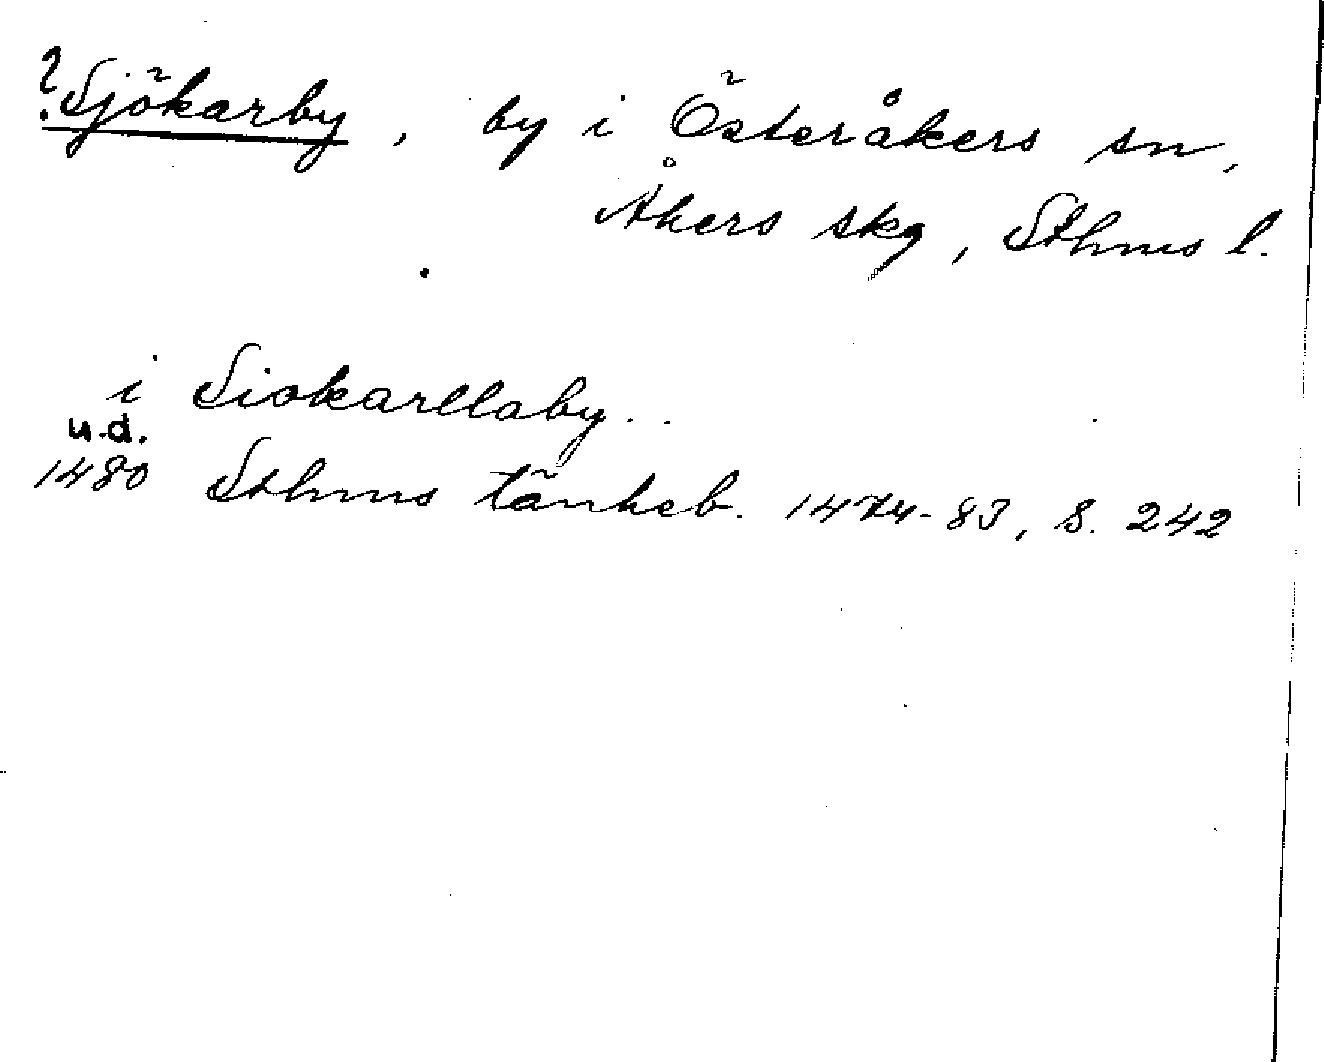 ?Sjökarby, by i Österåkers sn,
Åkers skg, Sthms l.
i Siokarllaby..
u.d.
1480 Sthms tänkeb. 1474-83, s. 242